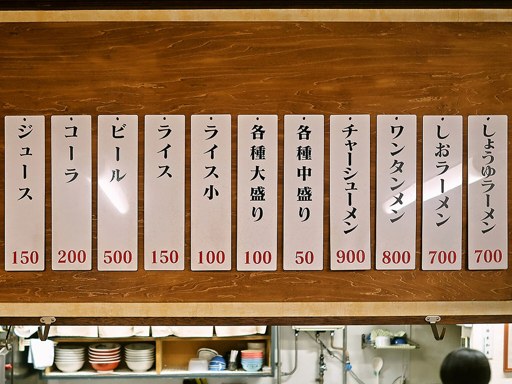 しょうゆラーメン
700
しおラーメン
700
ワンタンメン
800
チャーシューメン
900
各種中盛り
50
各種大盛り
100
ライス小
100
ライス
150
ビール
500
コーラ
200
ジュース
150